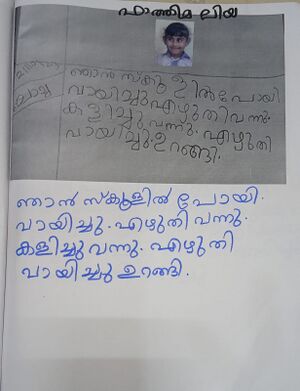 ഫാത്തിമ ലിയ
ഞാൻ സ്കൂളിൽ പോയി
വായിച്ചു എഴുതി വന്നു.
കളിച്ചു വന്നു. എഴുതി
വായിച്ചു. ഉറങ്ങി.
ഞാൻ സ്കൂളിൽ പോയി.
വായിച്ചു. എഴുതി വന്നു.
കളിച്ചു വന്നു. എഴുതി
വായിച്ചു ഉറങ്ങി.